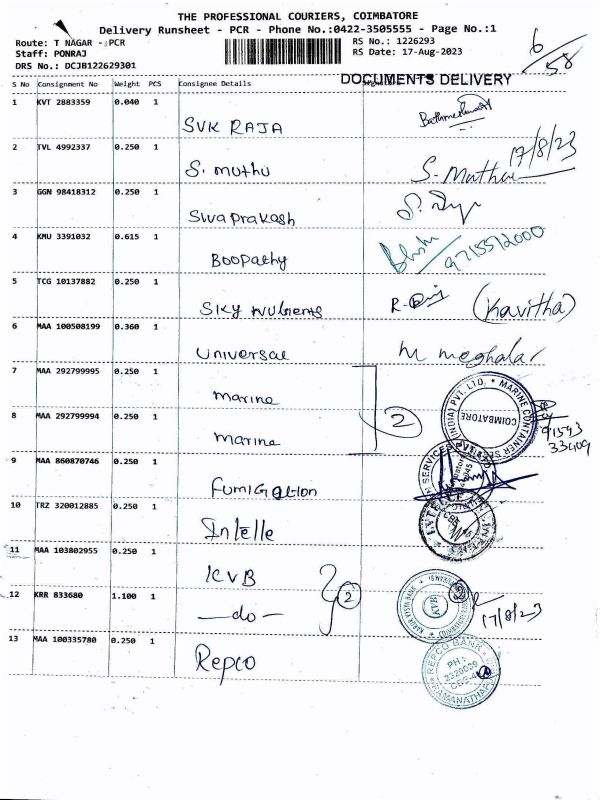 THE PROFESSIONAL COURIERS, COIMBATORE
Delivery Runsheet - PCR - Phone No.:0422-3505555 - Page No.:1
Route: T NAGAR - PCR
Staff: PONRAJ
DRS No.: DCJB122629301
RS No.: 1226293
RS Date: 17-Aug-2023
6/58
DOCUMENTS DELIVERY
S No Consignment No Weight PCS Consignee Details
1 KVT 2883359 0.040 1 SVK RAJA
2 TVL 4992337 0.250 1 S. muthu S. Muthu 17/8/23
3 GGN 98418312 0.250 1 Sivaprakash
4 KMU 3391032 0.615 1 Boopathy 9715512000
5 TCG 10137882 0.250 1 Sky (Kavitha)
6 MAA 100508199 0.360 1 Universal M meghalar
7 MAA 292799995 0.250 1 marine
8 MAA 292799994 0.250 1 marine
2
MARINE CONTAINER SERVICES (INDIA) PVT. LTD.
COIMBATORE
91593
33409
9 MAA 860870746 0.250 1 Fumigation
10 TRZ 320012885 0.250 1 Intelle
11 MAA 103802955 0.250 1 KVB
12 KRR 833680 1.100 1 —do—
2
KARUR VYSYA BANK
17/8/23
13 MAA 100335780 0.250 1 Repco
REPCO BANK
PH :
RAMANATHAPURAM